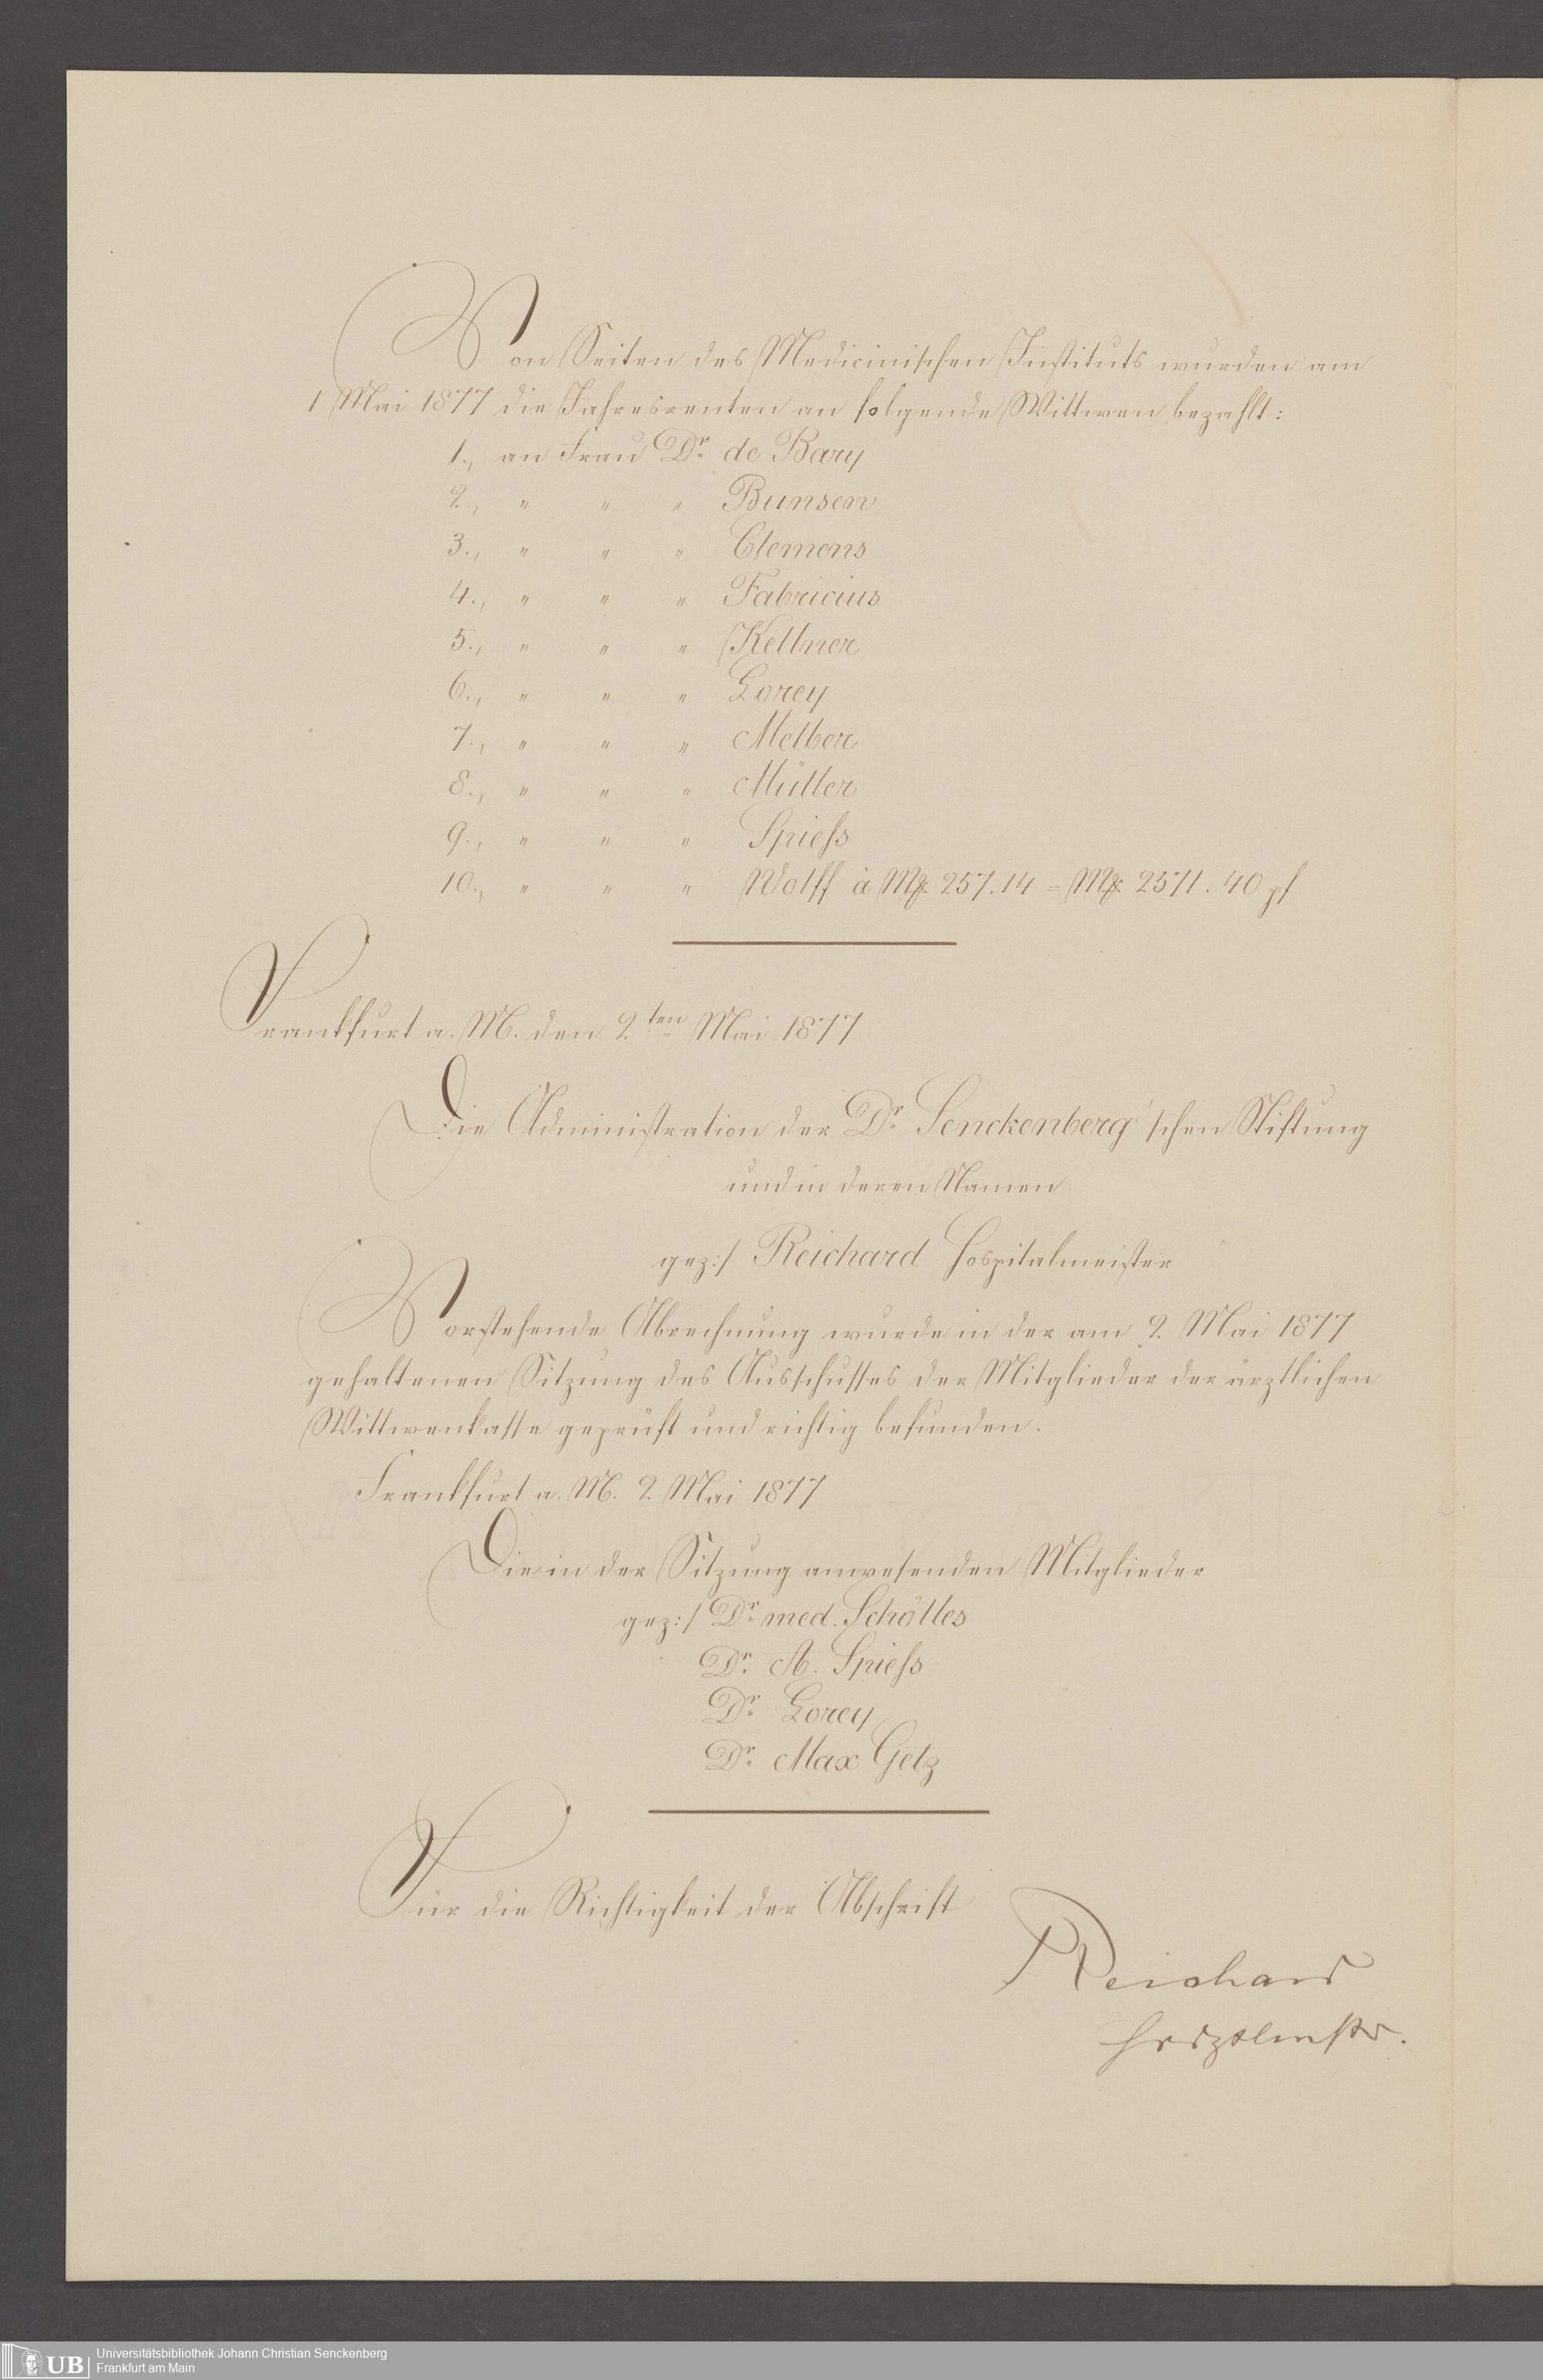 Von Seiten des Medicinischen Instituts wurden am
1 Mai 1877 die Jahresrenten an folgende Wittwen bezahlt:
1., an Frau Dr. de Bary
2., " " " Bunsen
3., " " " Clemens
4., " " " Fabricius
5., " " " Kellner
6., " " " Lorey
7., " " " Melber
8., " " " Müller
9., " " " Spieſs
10., " " " Wolff à Mk 257.14 = Mk 2571.40 pf
Frankfurt a. M. den 2.ten Mai 1877
Die Administration der Dr. Senckenberg'schen Stiftung
und in deren Namen
gez:/ Reichard Hospitalmeister
Vorstehende Abrechnung wurde in der am 2. Mai 1877
gehaltenen Sitzung des Ausschusses der Mitglieder der ärztlichen
Wittwenkasse geprüft und richtig befunden.
Frankfurt a. M. 2. Mai 1877
Die in der Sitzung anwesenden Mitglieder
gez:/ Dr. med. Schölles
Dr. A. Spieſs
Dr. Lorey
Dr. Max Getz
Für die Richtigkeit der Abschrift
Reichard
UB Universitätsbibliothek Johann Christian Senckenberg
Frankfurt am Main